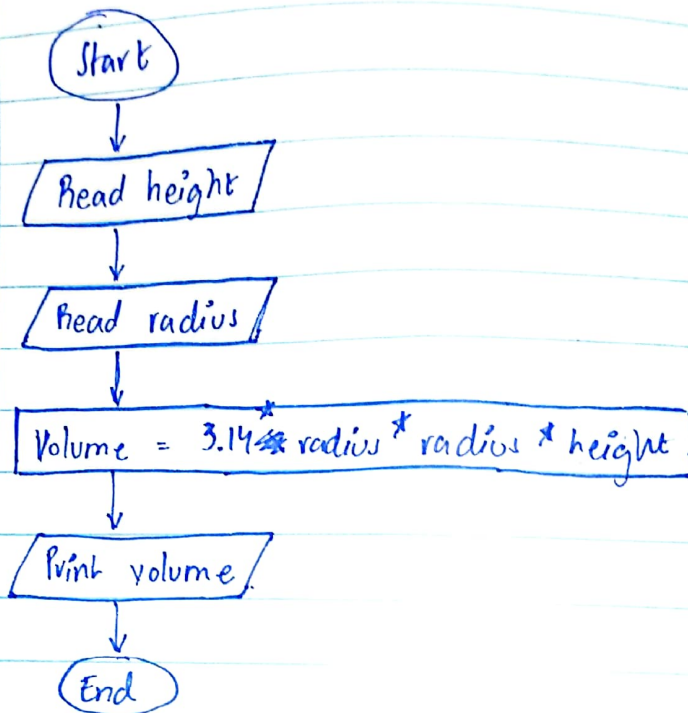 Start
Read height
Read radius
Volume = 3.14 * radius * radius * height
Print volume
End